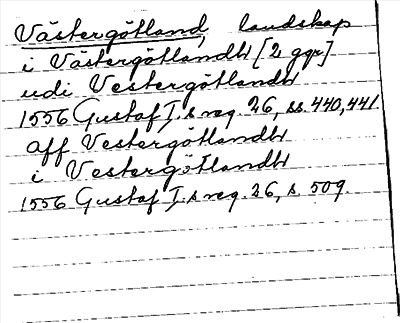 Västergötland, landskap
i Västergötlandh [2 ggr]
udi Vestergötlandh
1556 Gustaf I:s reg. 26, ss. 440, 441.
aff Vestergötlandh
i Vestergötlandh
1556 Gustaf I:s reg. 26, s. 509.